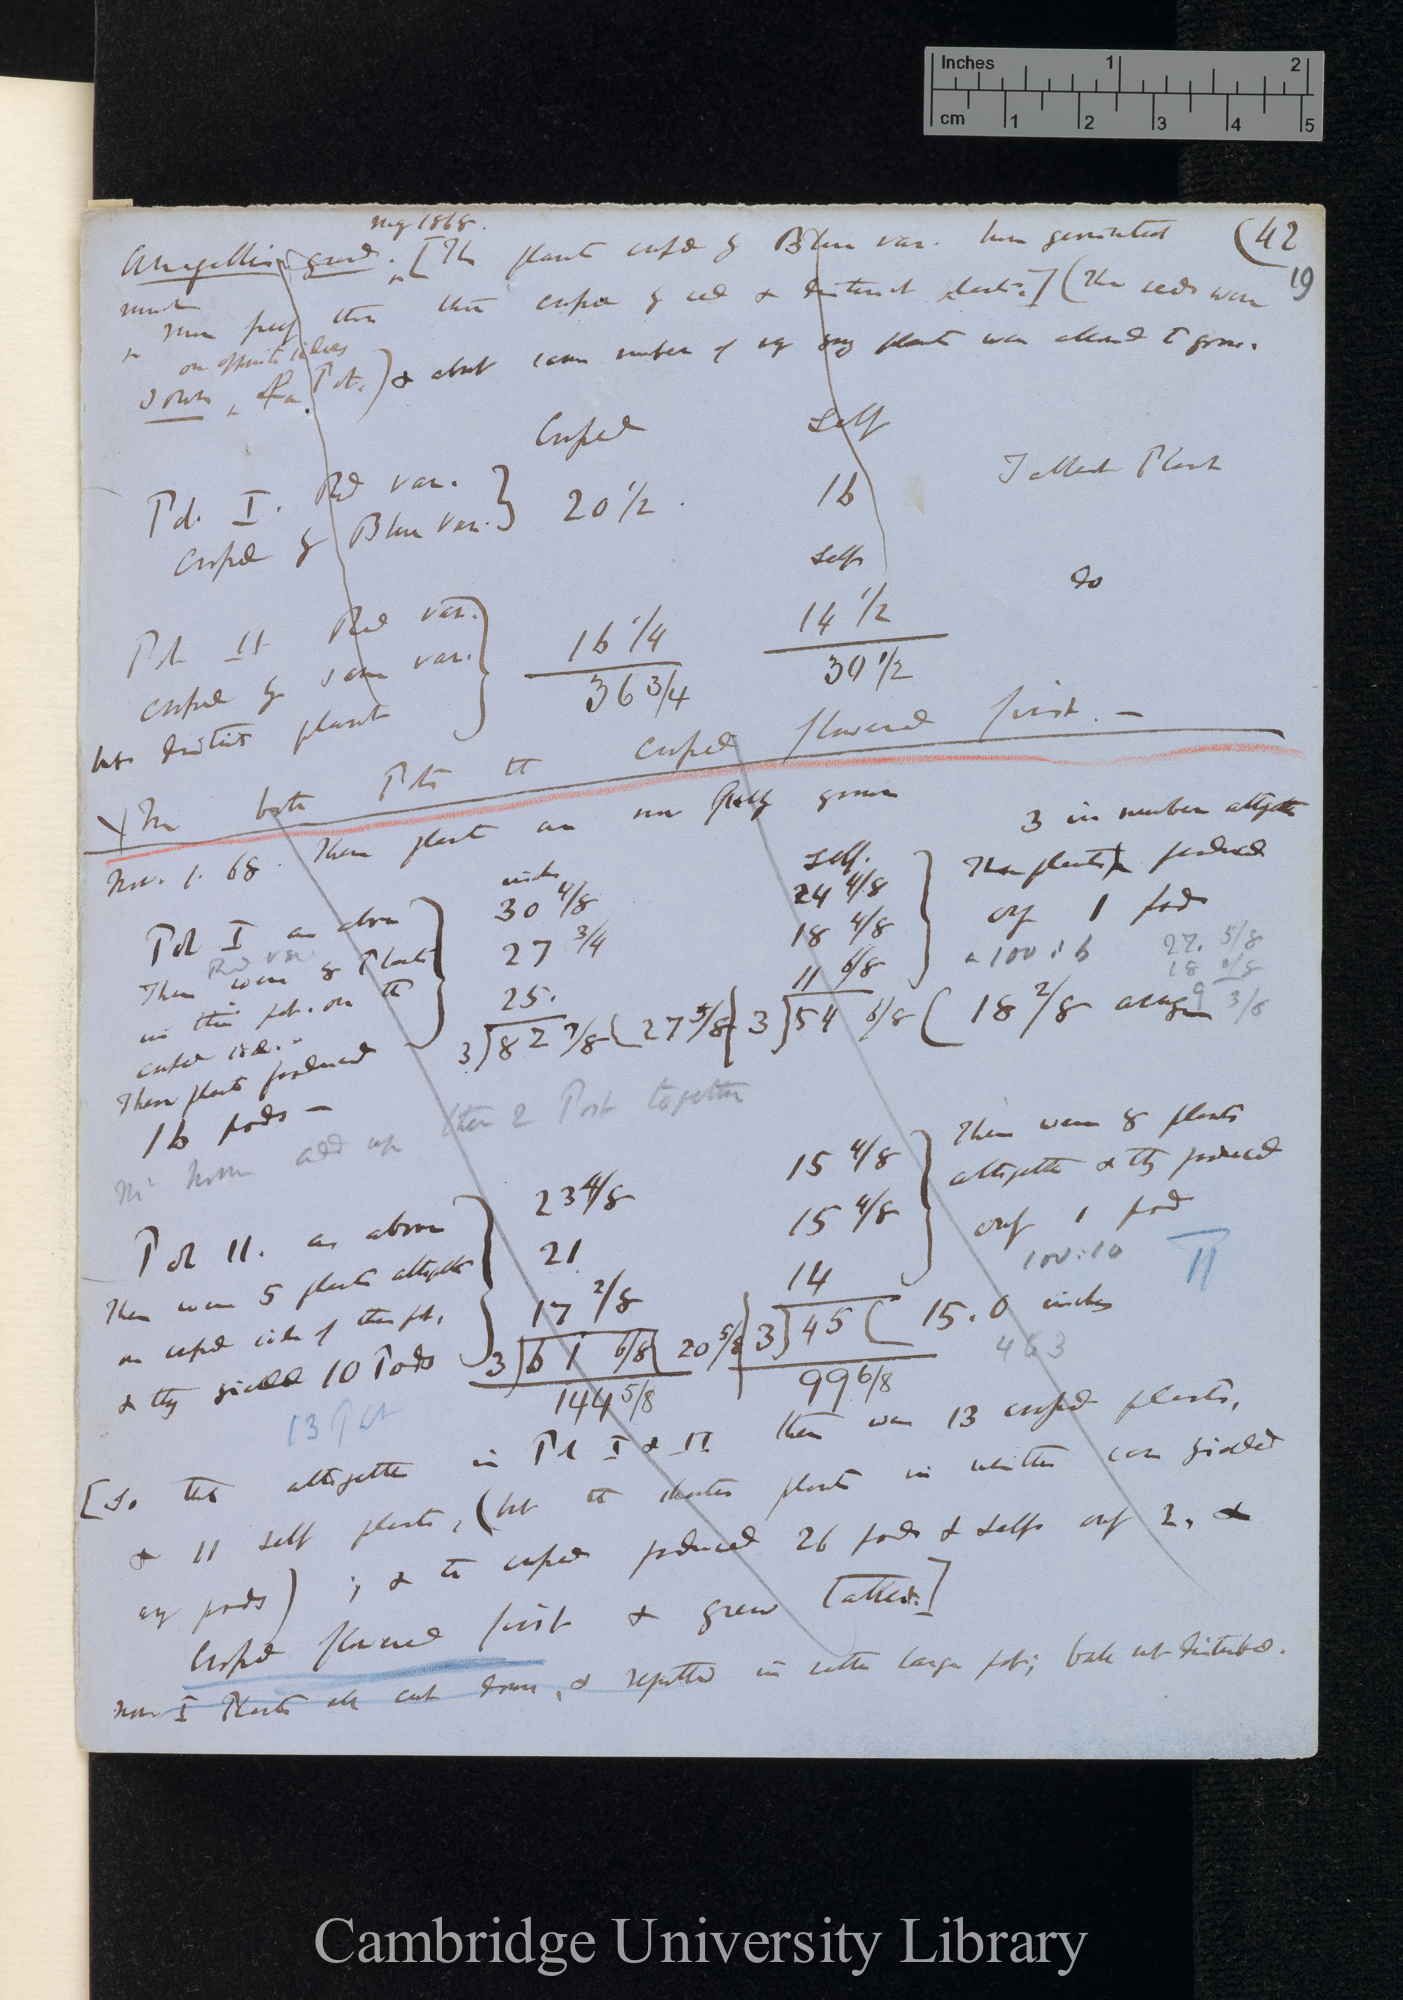 Inches 1 2
cm 1 2 3 4 5
Aug 1868.
(42
19
Anagallis grand. [The plants crossed by Blue var. have germinated
much more freely than those crossed by red & distinct plants.] (The seeds were
on opposite sides
sown of Pot.) & about same number of plants were allowed to grow.
Crossed Self
Pot. I. Red var.
crossed by Blue var. } 20 1/2. 16 Tallest Plant
Self
Pot II Red var.
crossed by same var. } 16 1/4 14 1/2 do
but distinct plant 36 3/4 30 1/2
In both Pots the crossed flowered first. —
Nov. 1. 68. These plants are now fully grown
Pot I as above
Red var
There were 8 Plants
in this pot. on the
crossed side.
These plants produced
16 pods —
inches
30 4/8
27 3/4
25.
3) 82 7/8 (27 5/8
Self.
24 4/8
18 4/8
11 6/8
3) 54 6/8 ( 18 2/8 average
3 in number altogether
These plants produced
only 1 pods
100 : 6
27. 5/8
18 2/8
9 3/8
add up these 2 Pots together
Pot II. as above
There were 5 plants altogether
on crossed side of this pot,
& they yielded 10 Pods
23 4/8
21
17 2/8
3) 61 6/8 ( 20 5/8
144 5/8
15 4/8
15 4/8
14
3) 45 ( 15.0 inches
99 6/8
There were 8 plants
altogether & they produced
only 1 pod
100 : 10
II
463
13 Pot
[So that altogether in Pot I & II there were 13 crossed plants,
& 11 self plants, (but the shorter plants in neither case yielded
any pods) ; & the crossed produced 26 pods & selfs only 2, &
crossed flowered first & grew tallest.]
Now I Plants all cut down, & repotted in rather large pots; balls not disturbed.
Cambridge University Library